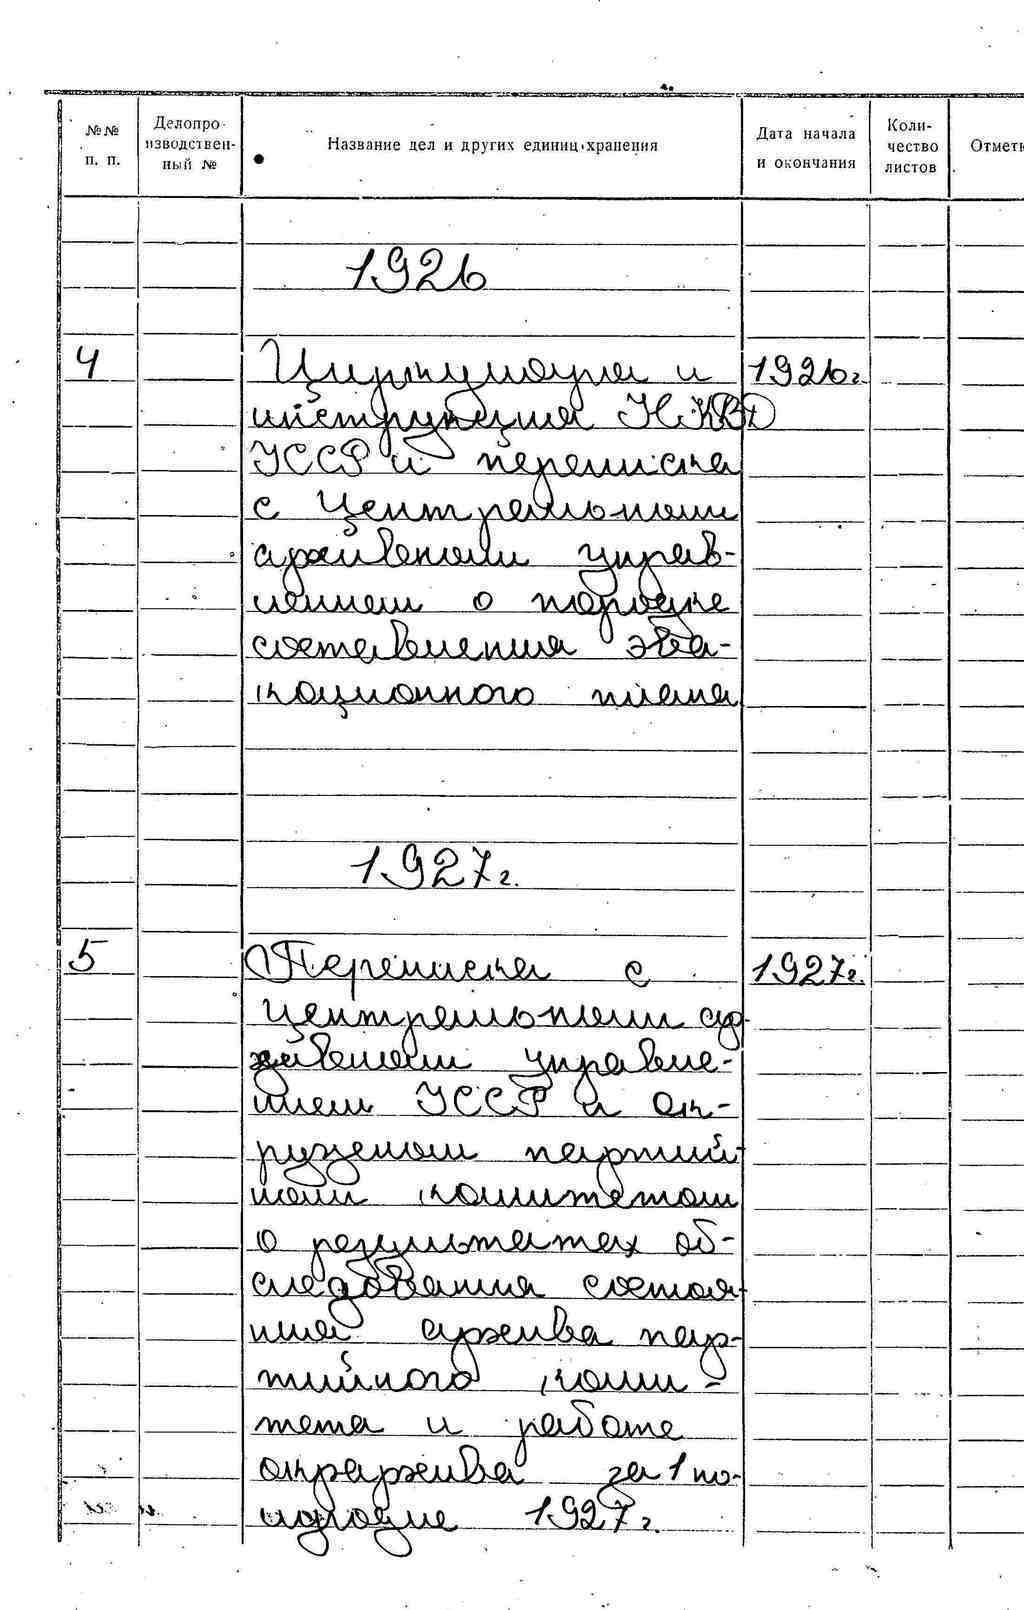 №№ п. п.
Делопроизводствен-ный №
Название дел и других единиц хранения
Дата начала и окончания
Коли-чество листов
Отметк
1926
4 Циркуляра и 1926г.
инструкция НКВД
УССР и переписка
с Центральным
архивным управ-
лением о порядке
составления эва-
коционного плана
1927г.
5 Переписка с 1927г.
центральным ар-
хивным управле-
нием УССР и ок-
ружном партий-
ным комитетом
о результатах об-
следования состоя-
ния архива пар-
тийного коми-
тета и работе
окрархива за 1 по-
лугодие 1927г.